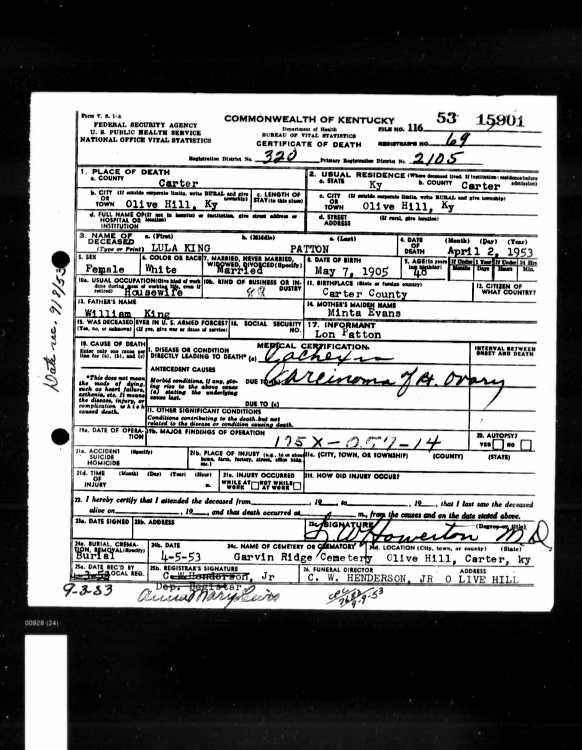 Form V. S. 1-A
FEDERAL SECURITY AGENCY
U. S. PUBLIC HEALTH SERVICE
NATIONAL OFFICE VITAL STATISTICS
COMMONWEALTH OF KENTUCKY
Department of Health
BUREAU OF VITAL STATISTICS
CERTIFICATE OF DEATH
53 15901
FILE NO. 116
REGISTRAR'S NO. 69
Registration District No. 320 Primary Registration District No. 2105
1. PLACE OF DEATH
a. COUNTY Carter
2. USUAL RESIDENCE (Where deceased lived. If institution: residence before admission)
a. STATE Ky b. COUNTY Carter
b. CITY (If outside corporate limits, write RURAL and give township) OR TOWN Olive Hill, Ky
c. LENGTH OF STAY (in this place)
c. CITY (If outside corporate limits, write RURAL and give township) OR TOWN Olive Hill, Ky
d. FULL NAME OF (If not in hospital or institution, give street address or location) HOSPITAL OR INSTITUTION
d. STREET ADDRESS (If rural, give location)
3. NAME OF DECEASED (Type or Print) a. (First) b. (Middle) c. (Last)
LULA KING PATTON
4. DATE OF DEATH (Month) (Day) (Year)
April 2, 1953
5. SEX Female
6. COLOR OR RACE White
7. MARRIED, NEVER MARRIED, WIDOWED, DIVORCED (Specify) Married
8. DATE OF BIRTH May 7, 1905
9. AGE (In years last birthday) 48
If Under 1 Year Months Days
If Under 24 Hrs Hours Min.
10a. USUAL OCCUPATION (Give kind of work done during most of working life, even if retired) Housewife
10b. KIND OF BUSINESS OR INDUSTRY
11. BIRTHPLACE (State or foreign country) Carter County
12. CITIZEN OF WHAT COUNTRY?
13. FATHER'S NAME William King
14. MOTHER'S MAIDEN NAME Minta Evans
15. WAS DECEASED EVER IN U. S. ARMED FORCES? (Yes, no, or unknown) (If yes, give war or dates of service)
16. SOCIAL SECURITY NO.
17. INFORMANT Lon Patton
18. CAUSE OF DEATH
Enter only one cause per line for (a), (b), and (c)
MEDICAL CERTIFICATION
INTERVAL BETWEEN ONSET AND DEATH
I. DISEASE OR CONDITION DIRECTLY LEADING TO DEATH* (a) Cachexia
*This does not mean the mode of dying, such as heart failure, asthenia, etc. It means the disease, injury, or complication which caused death.
ANTECEDENT CAUSES
Morbid conditions, if any, giving rise to the above cause (a) stating the underlying cause last.
DUE TO (b) Carcinoma of rt. Ovary
DUE TO (c)
II. OTHER SIGNIFICANT CONDITIONS
Conditions contributing to the death but not related to the disease or condition causing death.
19a. DATE OF OPERATION
19b. MAJOR FINDINGS OF OPERATION
175X-057-14
20. AUTOPSY?
YES NO
21a. ACCIDENT SUICIDE HOMICIDE (Specify)
21b. PLACE OF INJURY (e.g., in or about home, farm, factory, street, office bldg., etc.)
21c. (CITY, TOWN, OR TOWNSHIP) (COUNTY) (STATE)
21d. TIME OF INJURY (Month) (Day) (Year) (Hour) m.
21e. INJURY OCCURRED WHILE AT WORK NOT WHILE AT WORK
21f. HOW DID INJURY OCCUR?
22. I hereby certify that I attended the deceased from , 19 to , 19 , that I last saw the deceased
alive on , 19 , and that death occurred at m., from the causes and on the date stated above.
23a. DATE SIGNED
23b. ADDRESS
23c. SIGNATURE (Degree or title)
Howerton M D
24a. BURIAL, CREMATION, REMOVAL (Specify) Burial
24b. DATE 4-5-53
24c. NAME OF CEMETERY OR CREMATORY Garvin Ridge Cemetery
24d. LOCATION (City, town, or county) (State) Olive Hill, Carter, ky
25a. DATE REC'D BY LOCAL REG.
9-3-53
25b. REGISTRAR'S SIGNATURE
C. W. Henderson, Jr
Dep. Registar
26. FUNERAL DIRECTOR ADDRESS
C. W. HENDERSON, JR O LIVE HILL
9-9-53
00928 (24)